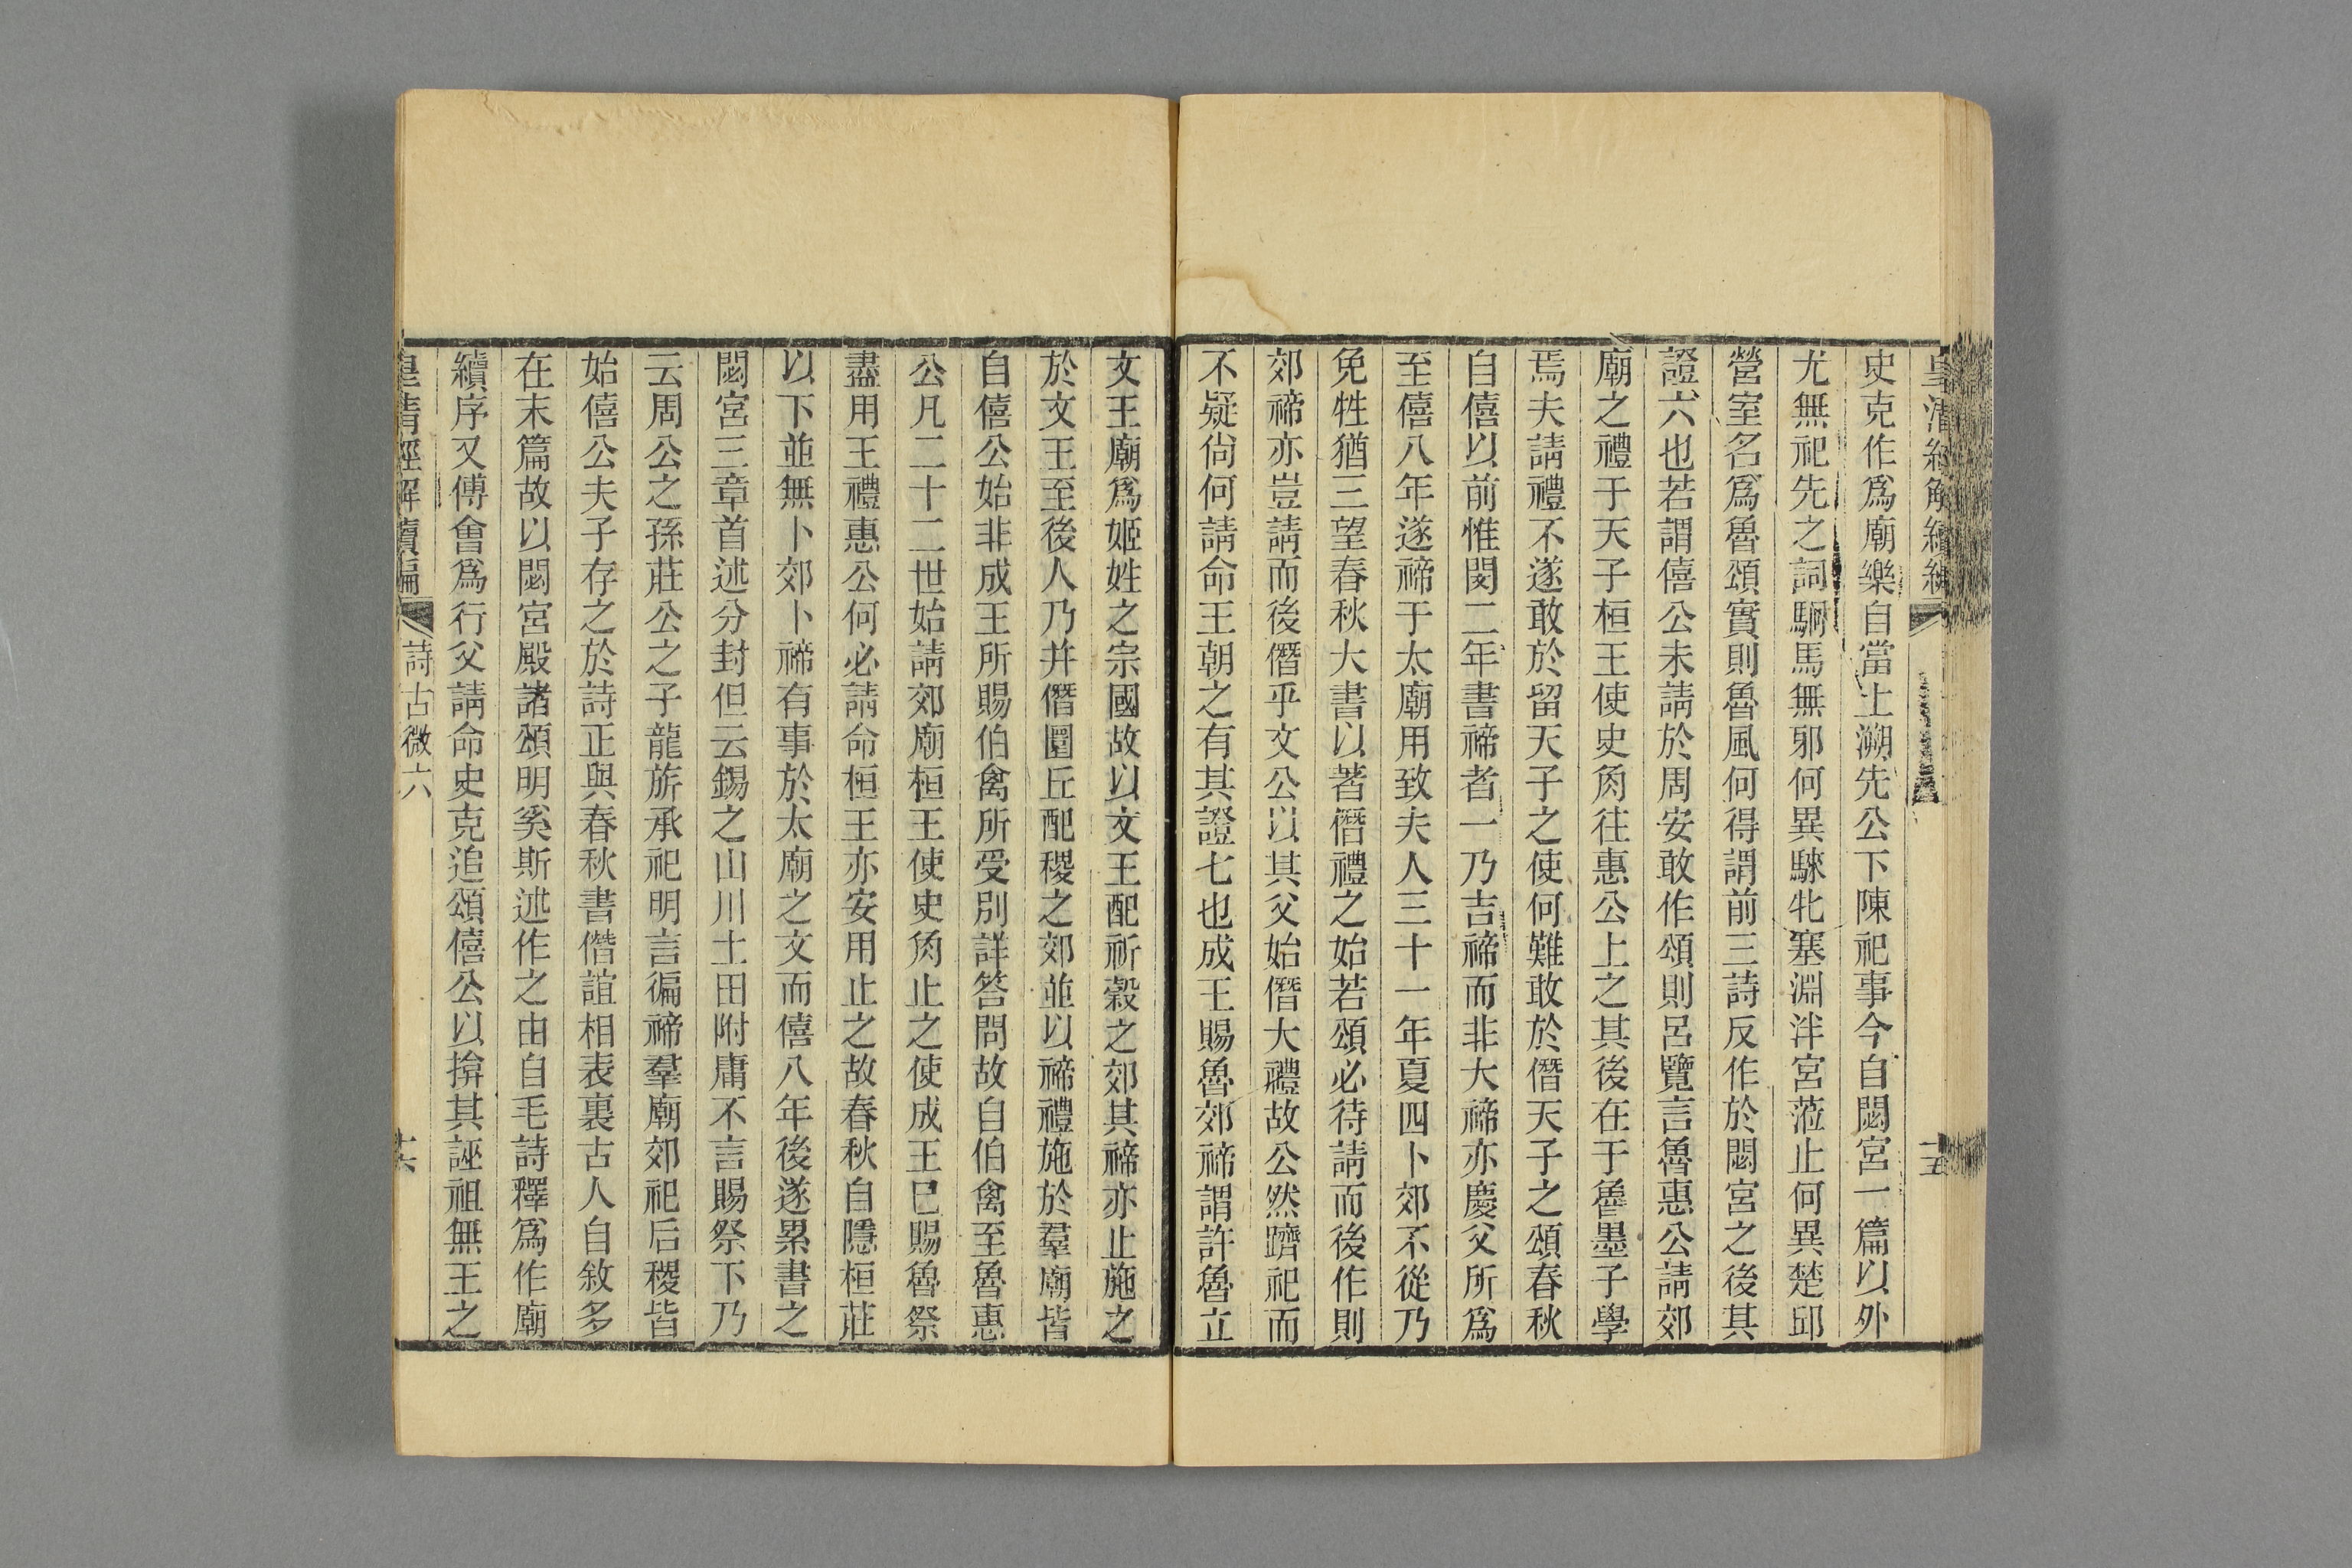 皇清經解續編
十五
史克作爲廟樂自當上溯先公下陳祀事今自閟宮一篇以外
尤無祀先之詞駉馬無邪何異騋牝塞淵泮宮蒞止何異楚邱
營室名爲魯頌實則魯風何得謂前三詩反作於閟宮之後其
證六也若謂僖公未請於周安敢作頌則呂覽言魯惠公請郊
廟之禮于天子桓王使史角往惠公上之其後在于魯墨子學
焉夫請禮不遂敢於留天子之使何難敢於僭天子之頌春秋
自僖以前惟閔二年書禘者一乃吉禘而非大禘亦慶父所爲
至僖八年遂禘于太廟用致夫人三十一年夏四卜郊不從乃
免牲猶三望春秋大書以著僭禮之始若頌必待請而後作則
郊禘亦豈請而後僭乎文公以其父始僭大禮故公然躋祀而
不疑尙何請命王朝之有其證七也成王賜魯郊禘謂許魯立
文王廟爲姬姓之宗國故以文王配祈穀之郊其禘亦止施之
於文王至後人乃幷僭圜丘配稷之郊並以禘禮施於羣廟皆
自僖公始非成王所賜伯禽所受別詳答問故自伯禽至魯惠
公凡二十二世始請郊廟桓王使史角止之使成王巳賜魯祭
盡用王禮惠公何必請命桓王亦安用止之故春秋自隱桓莊
以下並無卜郊卜禘有事於太廟之文而僖八年後遂累書之
閟宮三章首述分封但云錫之山川土田附庸不言賜祭下乃
云周公之孫莊公之子龍旂承祀明言徧禘羣廟郊祀后稷皆
始僖公夫子存之於詩正與春秋書僭誼相表裏古人自敘多
在末篇故以閟宮殿諸頌明奚斯述作之由自毛詩釋爲作廟
續序又傅會爲行父請命史克追頌僖公以揜其誣祖無王之
皇清經解續編
詩古微六
十六